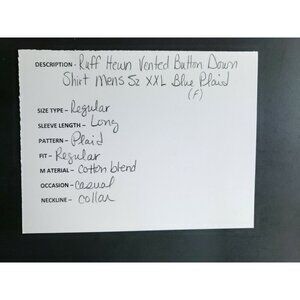 DESCRIPTION - Ruff Hewn Vented Button Down
Shirt Mens Sz XXL Blue Plaid
(F)
SIZE TYPE - Regular
SLEEVE LENGTH - Long
PATTERN - Plaid
FIT - Regular
MATERIAL - Cotton blend
OCCASION - Casual
NECKLINE - collar